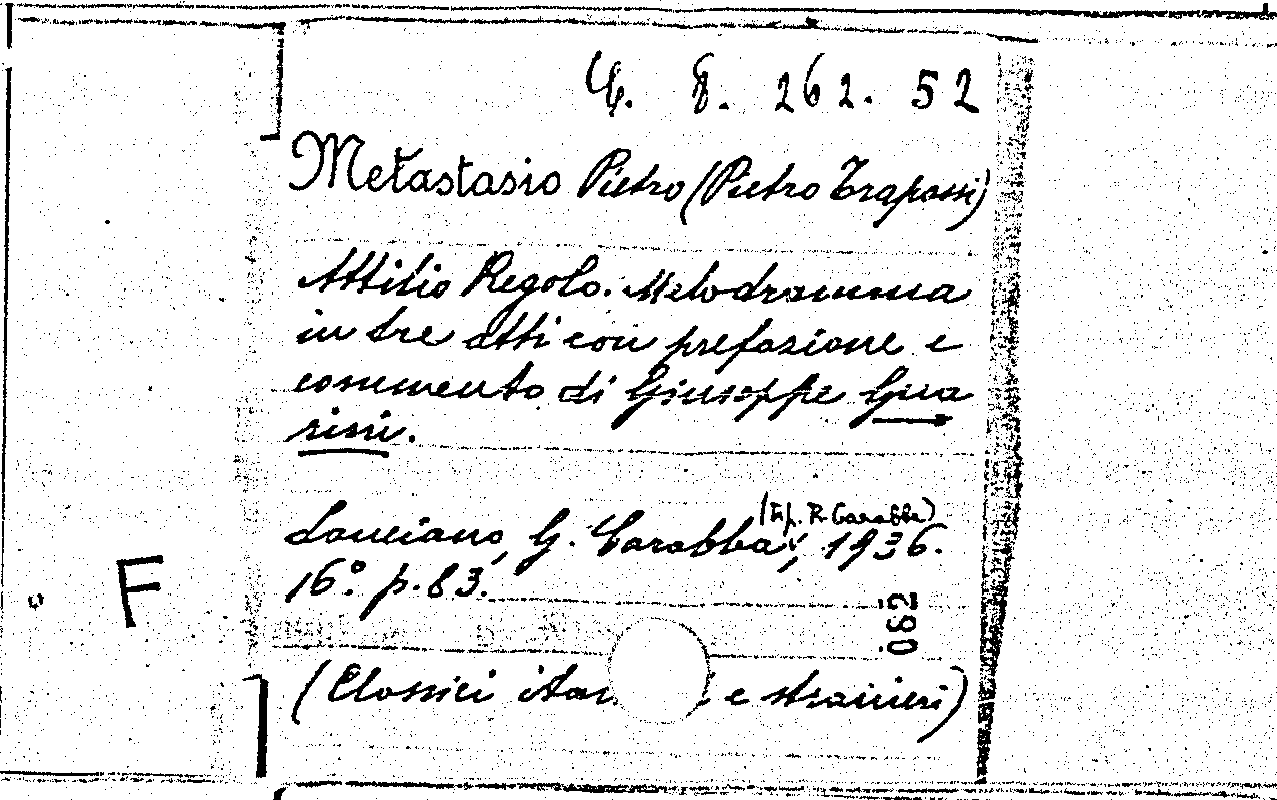 4. 8. 262. 52
Metastasio Pietro (Pietro Trapassi)
Attilio Regolo. Melodramma
in tre atti con prefazione e
commento di Giuseppe Gua
rini.
(tip. R. Carabba)
Lanciano, G. Carabba, 1936.
16° p. 83.
062
F
(Classici e stranieri)